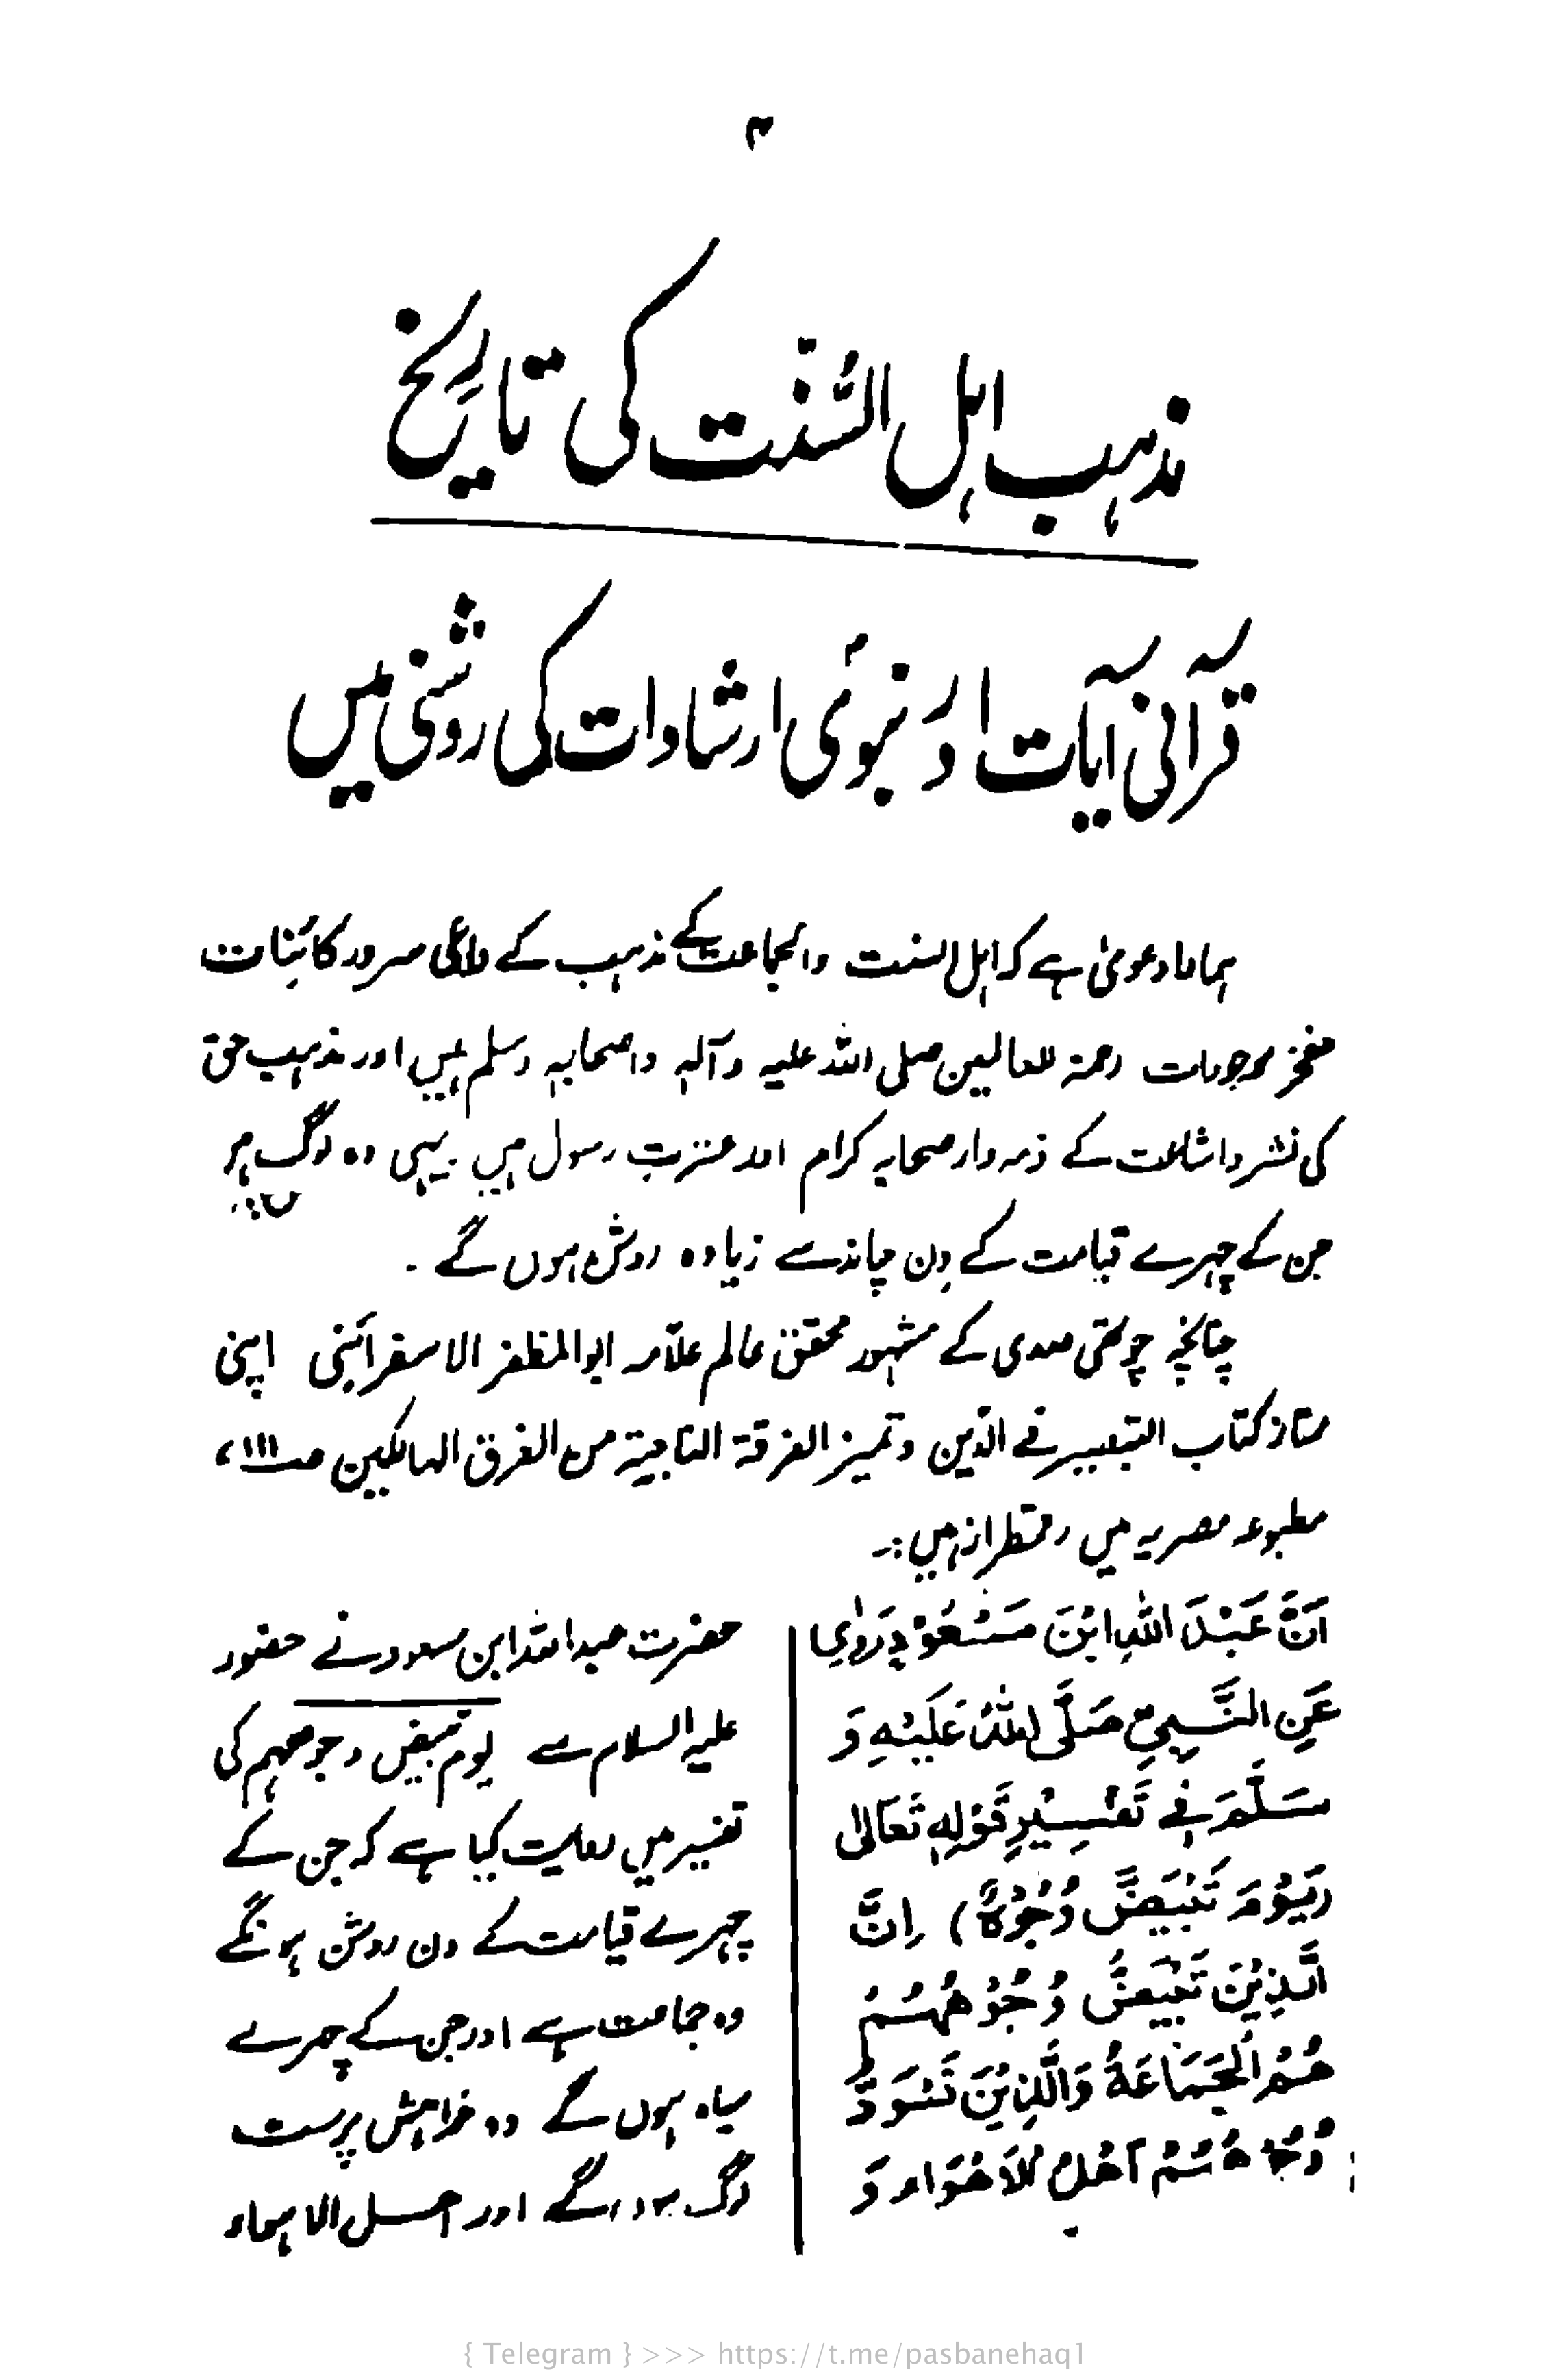 ۳
مذہب اہل السنّت کی تاریخ
قرآنی آیات اور نبویؐ ارشادات کی روشنی میں
ہمارا دعویٰ ہے کہ اہل السنت والجماعت کے مذہب کے داعی سرور کائنات
مفخر موجودات رحمۃ للعالمین صلی اللہ علیہ وآلہٖ واصحابہٖ وسلم ہیں اور مذہب حق
کی نشر واشاعت کے ذمہ دار صحابہ کرام اور عترت رسول ہیں یہی وہ لوگ ہیں
جن کے چہرے قیامت کے دِن چاند سے زیادہ روشن ہوں گے ۔
چنانچہ چوتھی صدی کے مشہور محقق عالم علّامہ ابوالمظفر الاسفرائنی اپنی
ممتاز کتاب التبصیر فے الدّین وتمیز الفرقۃ الناجیۃ من الفرق الہالکین صـ۱۱۱،
مطبوعہ مصریہ میں رقمطراز ہیں:۔
اَنَّ عَبْدَ اللّٰہِ ابْنَ مَسْعُوْدٍ رَوٰی
عَنِ النَّبِیِّ صَلَّی اللّٰہُ عَلَیْہِ وَ
سَلَّمَ فِے تَفْسِیْرِ قَوْلِہٖ تَعَالٰی
(یَوْمَ تَبْیَضُّ وُجُوْہٌ) اِنَّ
الَّذِیْنَ تَبْیَضُّ وُجُوْھُہُمْ
ھُمُ الْجَمَاعَۃُ وَالَّذِیْنَ تَسْوَدُّ
وُجُوْھُہُمْ اَھْلُ الْاَھْوَاءِ وَ
حضرت عبداللہ ابن مسعود نے حضور
علیہ السلام سے یوم تبیض وجوھہم کی
تفسیر میں روایت کیا ہے کہ جن کے
چہرے قیامت کے دن روشن ہونگے
وہ جماعت ہے اور جن کے چہرے
سیاہ ہوں گے وہ خواہش پرست
لوگ ہوں گے اور اھل الاہواء
{ Telegram } >>> https://t.me/pasbanehaq1